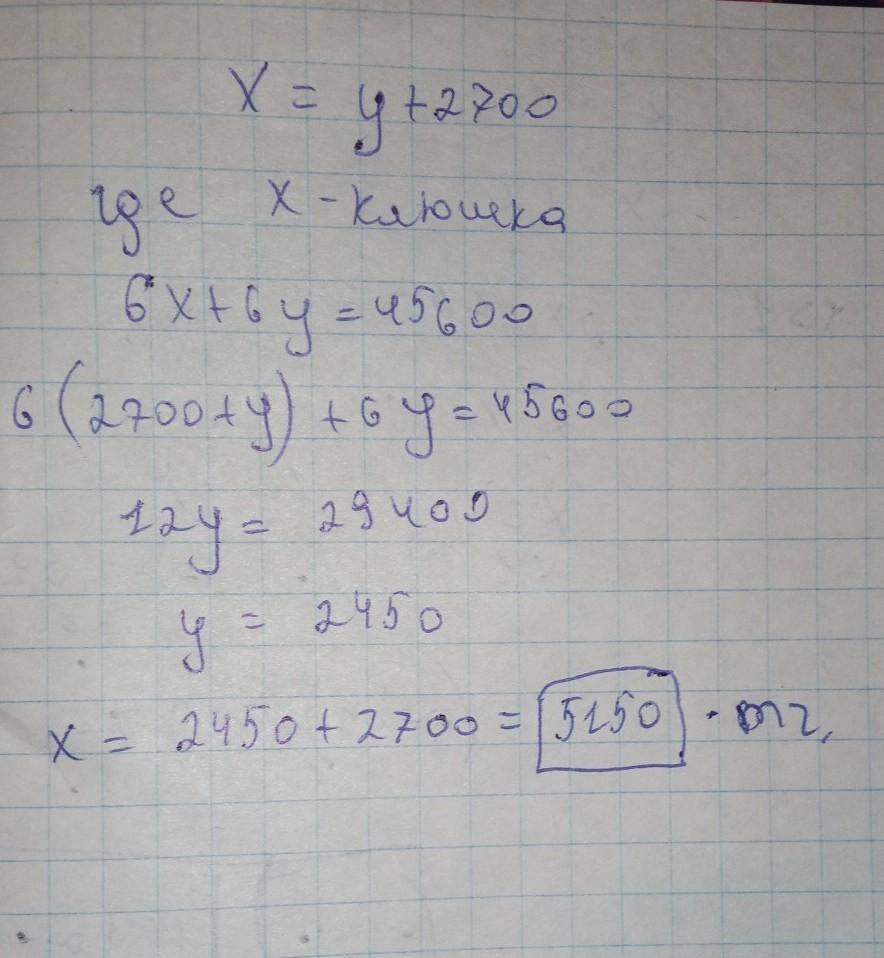 x = y+2700
где x - клюшка
6x+6y=45600
6(2700+y)+6y=45600
12y= 29400
y = 2450
x = 2450+2700=5150 тг,